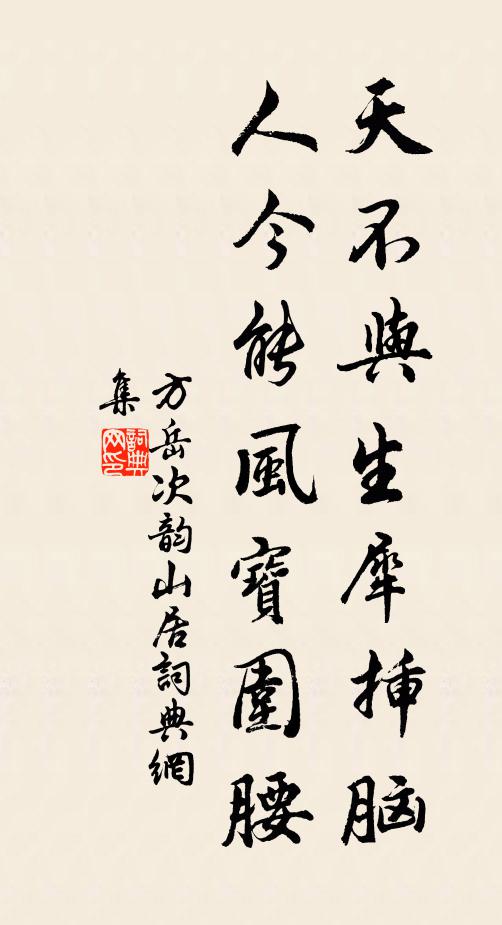 天不與生犀插脑
人今能風寶圍腰
方岳次韵山居詞典網
集
詞典網印